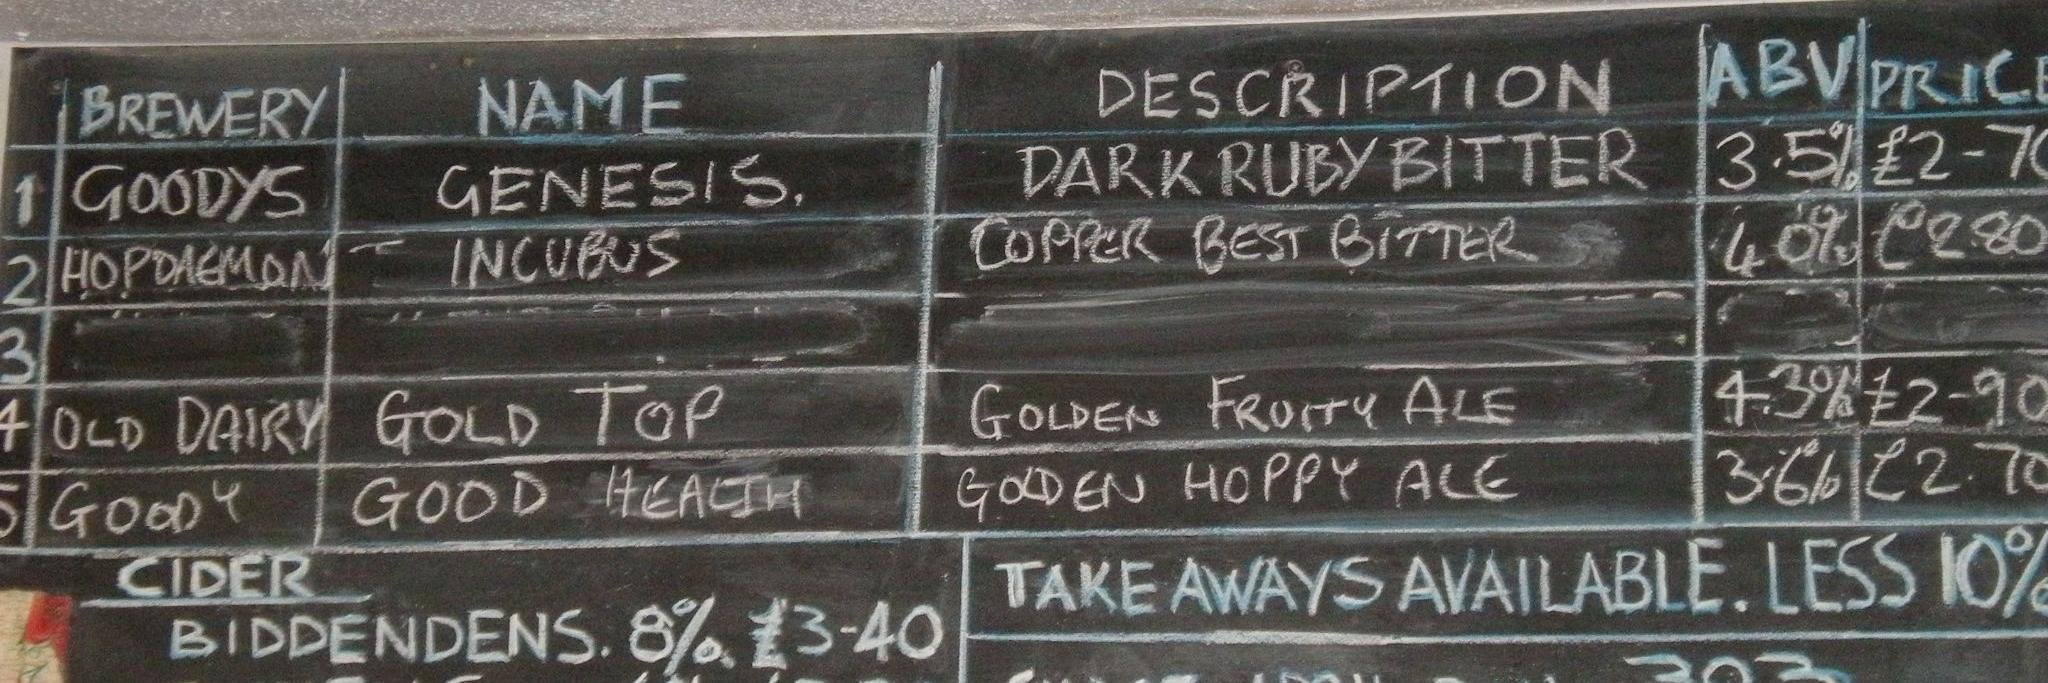 BREWERY NAME DESCRIPTION ABV PRICE
1 GOODYS GENESIS. DARK RUBY BITTER 3.5% £2-70
2 HOPDAEMON INCUBUS COPPER BEST BITTER 4.0% £2.80
3
4 OLD DAIRY GOLD TOP GOLDEN FRUITY ALE 4.3% £2-90
5 GOODY GOOD HEALTH GOLDEN HOPPY ALE 3.6% £2.70
CIDER
BIDDENDENS. 8% £3-40
TAKE AWAYS AVAILABLE. LESS 10%
303